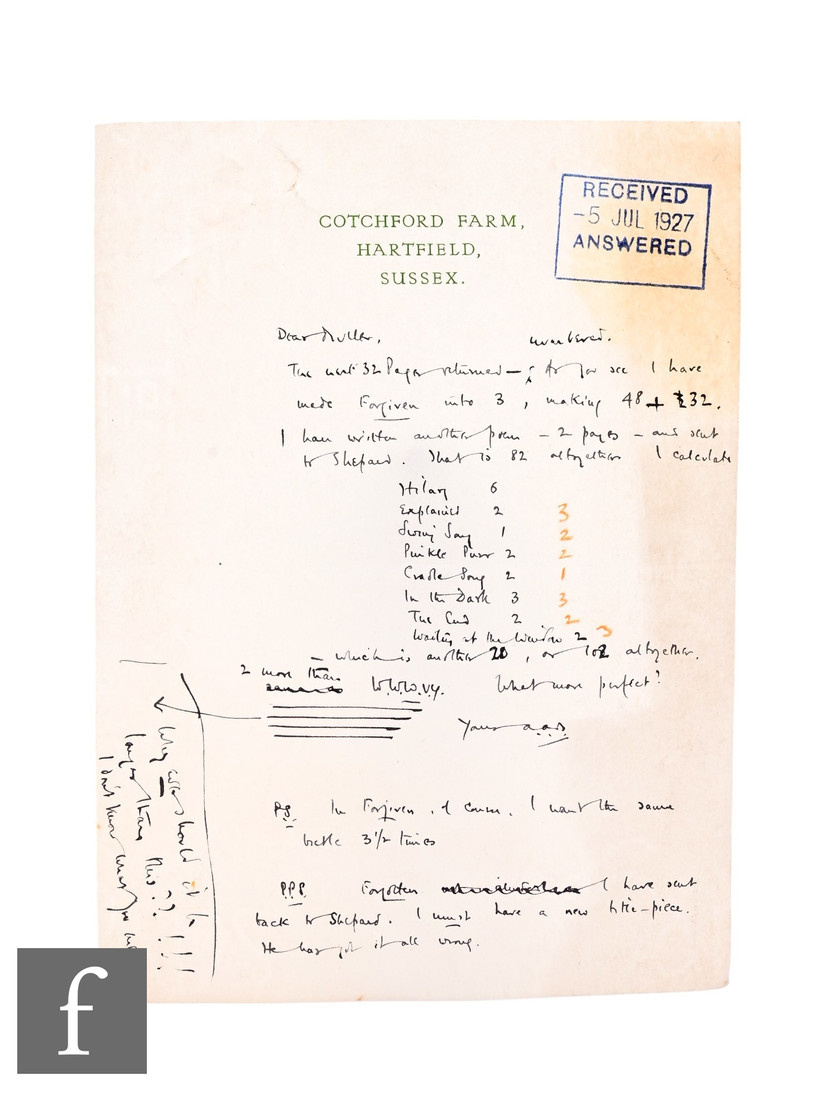 COTCHFORD FARM,
HARTFIELD,
SUSSEX.
RECEIVED
-5 JUL 1927
ANSWERED
Dear Muller,
numbered.
The next 32 Pages returned — ; As you see I have
made Forgiven into 3, making 48 + 32.
I have written another poem – 2 pages – and sent
to Shepard. That is 82 altogether I calculate
Hilary 6
Explained 2 3
Swing Song 1 2
Pinkle Purr 2 2
Cradle Song 2 1
In the Dark 3 3
The End 2 2
Waiting at the Window 2 3
– which is another 20, or 102 altogether.
2 more than
W.W.W.V.Y. What more perfect?
Yours a.a.m.
P.S. In Forgiven, of course, I want the same
beetle 3½ times
P.P.S. Forgotten I have sent
back to Shepard. I must have a new title-piece.
He has got it all wrong.
Why should it be
longer than this?? !!!
I don't know what you
f